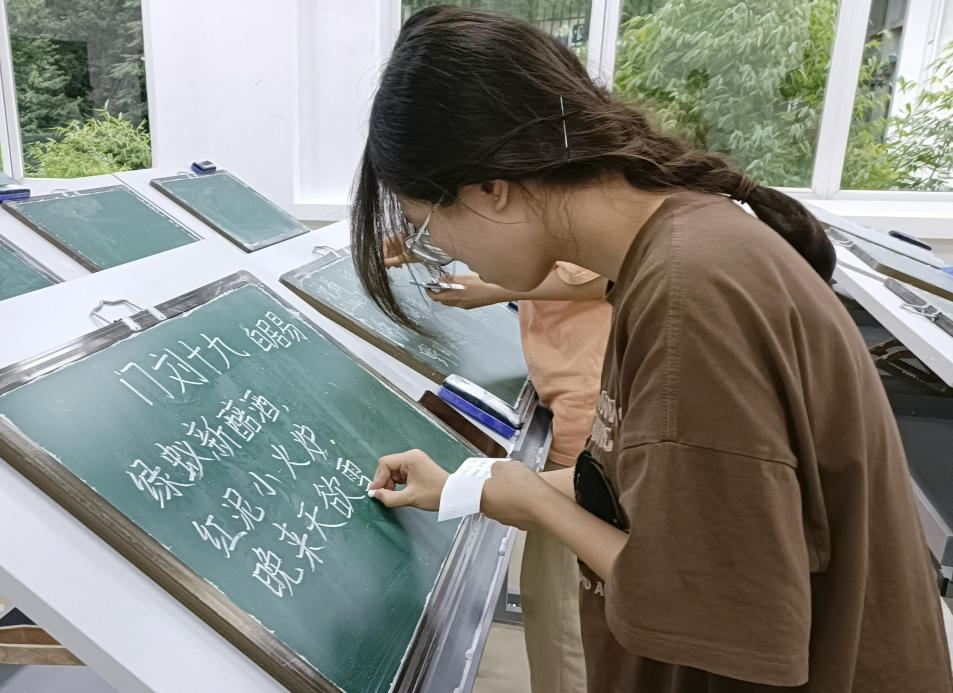 门刘十九 白居易
绿蚁新醅酒，
红泥小火炉.
晚来天欲雪